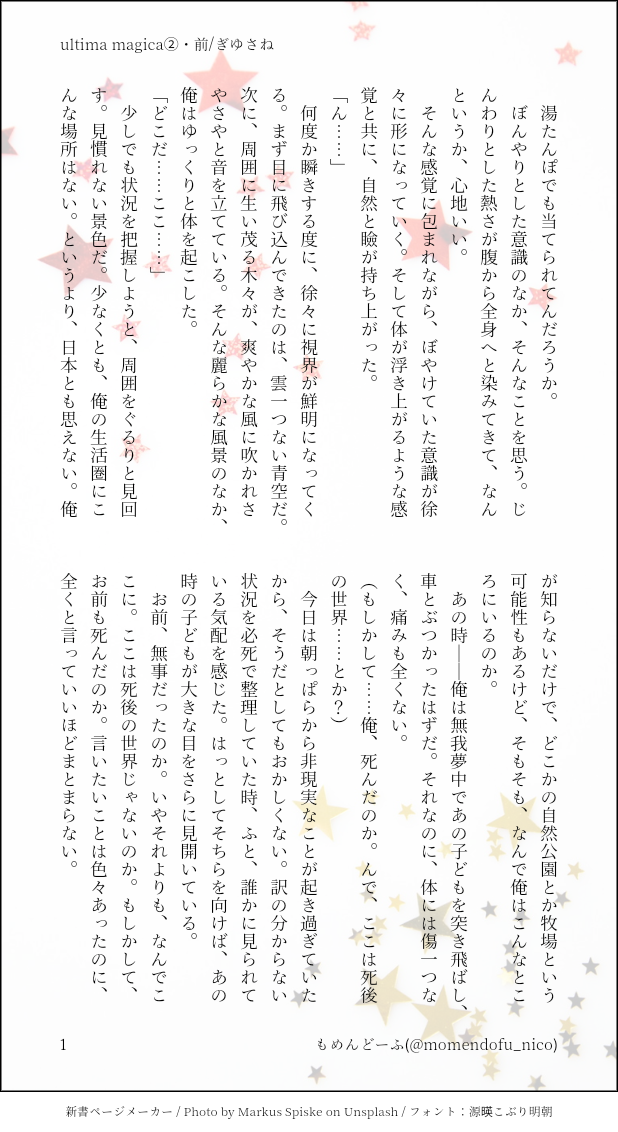 ultima magica②・前/ぎゆさね
　湯たんぽでも当てられてんだろうか。
　ぼんやりとした意識のなか、そんなことを思う。じ
んわりとした熱さが腹から全身へと染みてきて、なん
というか、心地いい。
　そんな感覚に包まれながら、ぼやけていた意識が徐
々に形になっていく。そして体が浮き上がるような感
覚と共に、自然と瞼が持ち上がった。
「ん……」
　何度か瞬きする度に、徐々に視界が鮮明になってく
る。まず目に飛び込んできたのは、雲一つない青空だ。
次に、周囲に生い茂る木々が、爽やかな風に吹かれさ
やさやと音を立てている。そんな麗らかな風景のなか、
俺はゆっくりと体を起こした。
「どこだ……ここ……」
　少しでも状況を把握しようと、周囲をぐるりと見回
す。見慣れない景色だ。少なくとも、俺の生活圏にこ
んな場所はない。というより、日本とも思えない。俺
が知らないだけで、どこかの自然公園とか牧場という
可能性もあるけど、そもそも、なんで俺はこんなとこ
ろにいるのか。
　あの時――俺は無我夢中であの子どもを突き飛ばし、
車とぶつかったはずだ。それなのに、体には傷一つな
く、痛みも全くない。
（もしかして……俺、死んだのか。んで、ここは死後
の世界……とか？）
　今日は朝っぱらから非現実なことが起き過ぎていた
から、そうだとしてもおかしくない。訳の分からない
状況を必死で整理していた時、ふと、誰かに見られて
いる気配を感じた。はっとしてそちらを向けば、あの
時の子どもが大きな目をさらに見開いている。
　お前、無事だったのか。いやそれよりも、なんでこ
こに。ここは死後の世界じゃないのか。もしかして、
お前も死んだのか。言いたいことは色々あったのに、
全くと言っていいほどまとまらない。
1
もめんどーふ(@momendofu_nico)
新書ページメーカー / Photo by Markus Spiske on Unsplash / フォント：源暎こぶり明朝